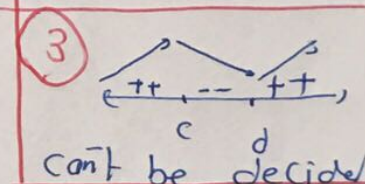 3
++ -- ++
c d
can't be decide